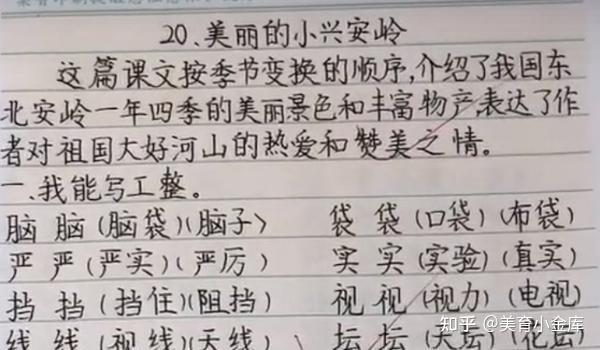 20、美丽的小兴安岭
这篇课文按季节变换的顺序,介绍了我国东
北安岭一年四季的美丽景色和丰富物产表达了作
者对祖国大好河山的热爱和赞美之情。
一、我能写工整。
脑 脑(脑袋)(脑子) 袋 袋(口袋)(布袋)
严 严(严实)(严厉) 实 实(实验)(真实)
挡 挡(挡住)(阻挡) 视 视(视力)(电视)
线 线(视线)(天线) 坛 坛(天坛)(花坛)
知乎 @美育小金库